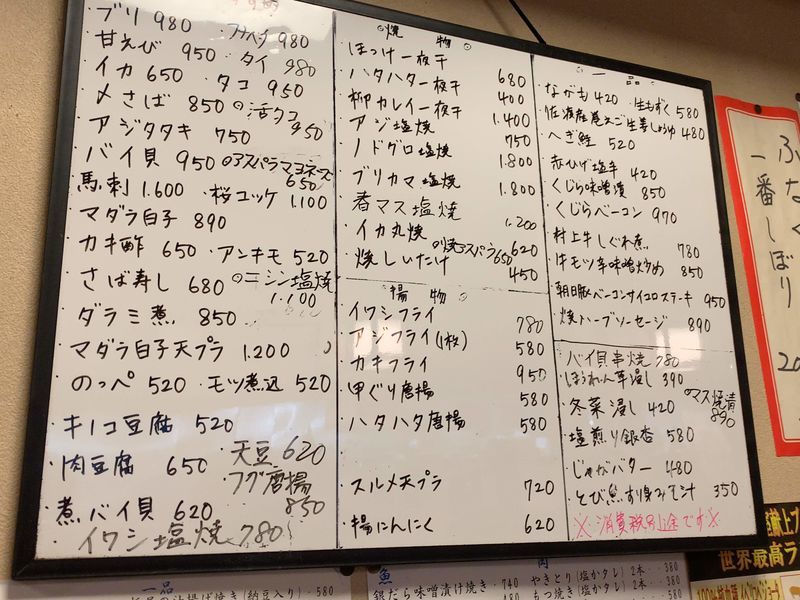 ブリ 980
980
甘えび 950 ・タイ 980
イカ 650 ・タコ 950
〆さば 850 ◎活タコ 950
アジタタキ 750
バイ貝 950 ◎アスパラマヨネーズ 650
馬刺 1.600 ・桜ユッケ 1.100
マダラ白子 890
カキ酢 650 ・アンキモ 520
さば寿し 680 ◎ニシン塩焼 1.100
ダラミ煮 850
マダラ白子天プラ 1.200
のっぺ 520 ・モツ煮込 520
キノコ豆腐 520
肉豆腐 650 ・天豆 620
・フグ唐揚 850
煮バイ貝 620
イワシ塩焼 780
◎焼 物◎
ほっけ一夜干 680
ハタハタ一夜干 400
柳カレイ一夜干 1.400
アジ塩焼 750
ノドグロ塩焼 1.800
ブリカマ塩焼 1.800
春マス塩焼 1.200
イカ丸焼 620
◎焼アスパラ 650
焼しいたけ 450
揚物◎
イワシフライ 780
アジフライ(1枚) 580
カキフライ 950
甲ぐり唐揚 580
ハタハタ唐揚 580
スルメ天プラ 720
揚にんにく 620
一 品
ながも 420 ・生もずく 580
佐渡産えご生姜しょうゆ 480
へぎ鮭 520
赤ひげ塩辛 420
くじら味噌漬 850
くじらベーコン 970
村上牛しぐれ煮 780
牛モツ辛味噌炒め 850
朝日豚ベーコンサイコロステーキ 950
焼ハーブソーセージ 890
バイ貝串焼 780
ほうれん草浸し 390
冬菜浸し 420 ◎マス焼漬 890
塩煎り銀杏 580
じゃがバター 480
とび魚すり身みそ汁 350
※消費税別途金です※
ふなぐ
一番しぼり
一品
の油揚げ焼き(納豆入り)・580
魚
銀だら味噌漬け焼き・740
肉
やきとり(塩かタレ)2本・・380
もつ焼き(塩かタレ)2本・・
世界最高